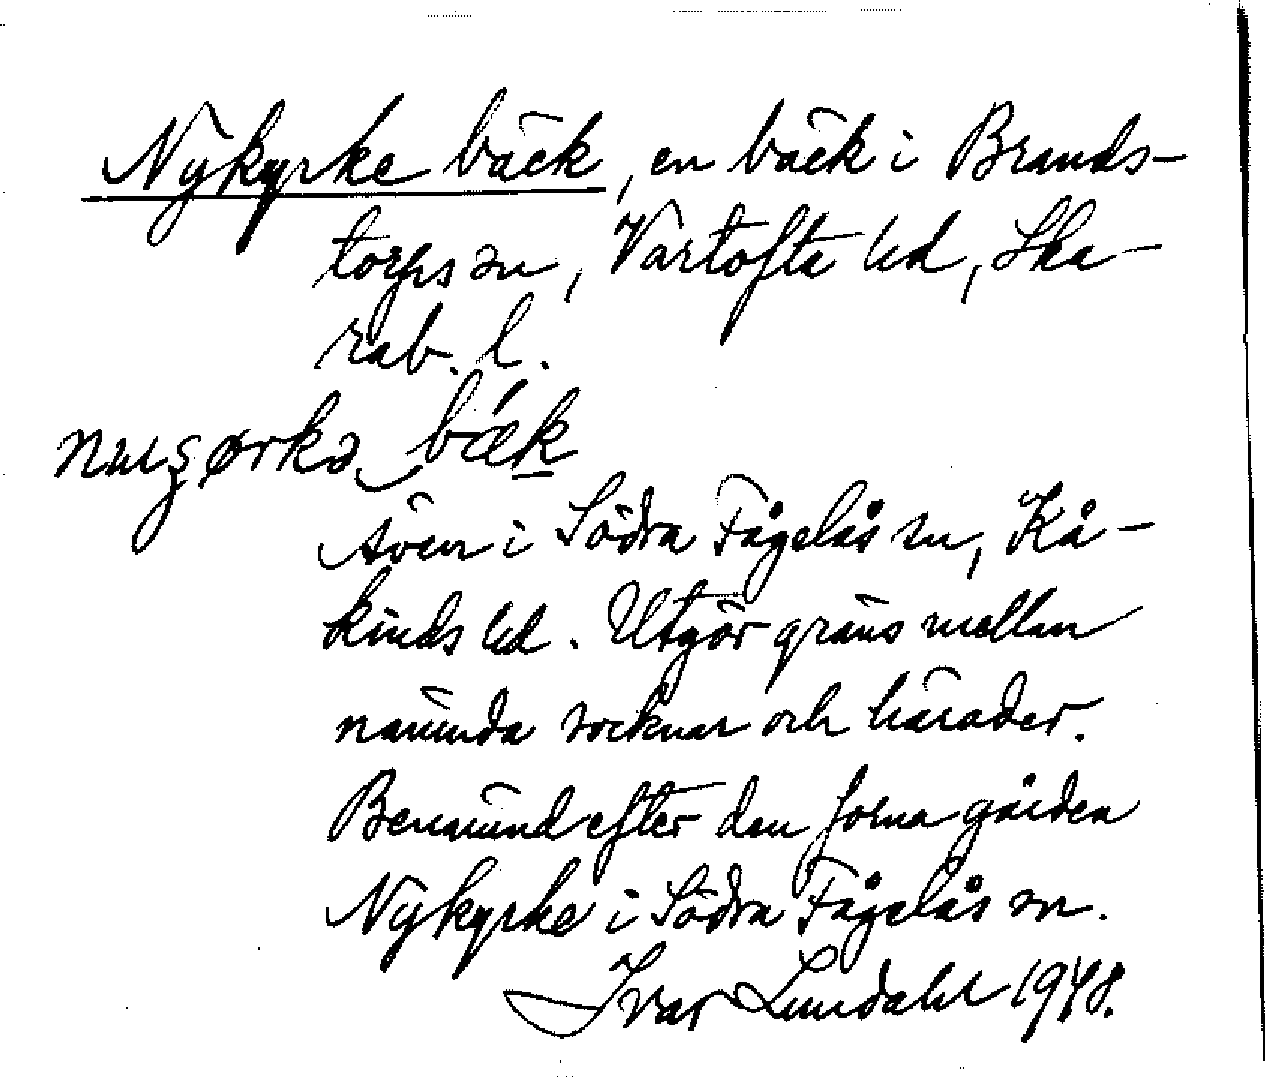 Nykyrke bäck, en bäck i Brands-
torps sn, Vartofta hd, Ska-
rab. l.
bæk
Även i Södra Fågelås sn, Kå-
kinds hd. Utgör gräns mellan
nämnda socknar och härader.
Benämnd efter den forna gården
Nykyrke i Södra Fågelås sn.
Ivar Lundahl 1948.